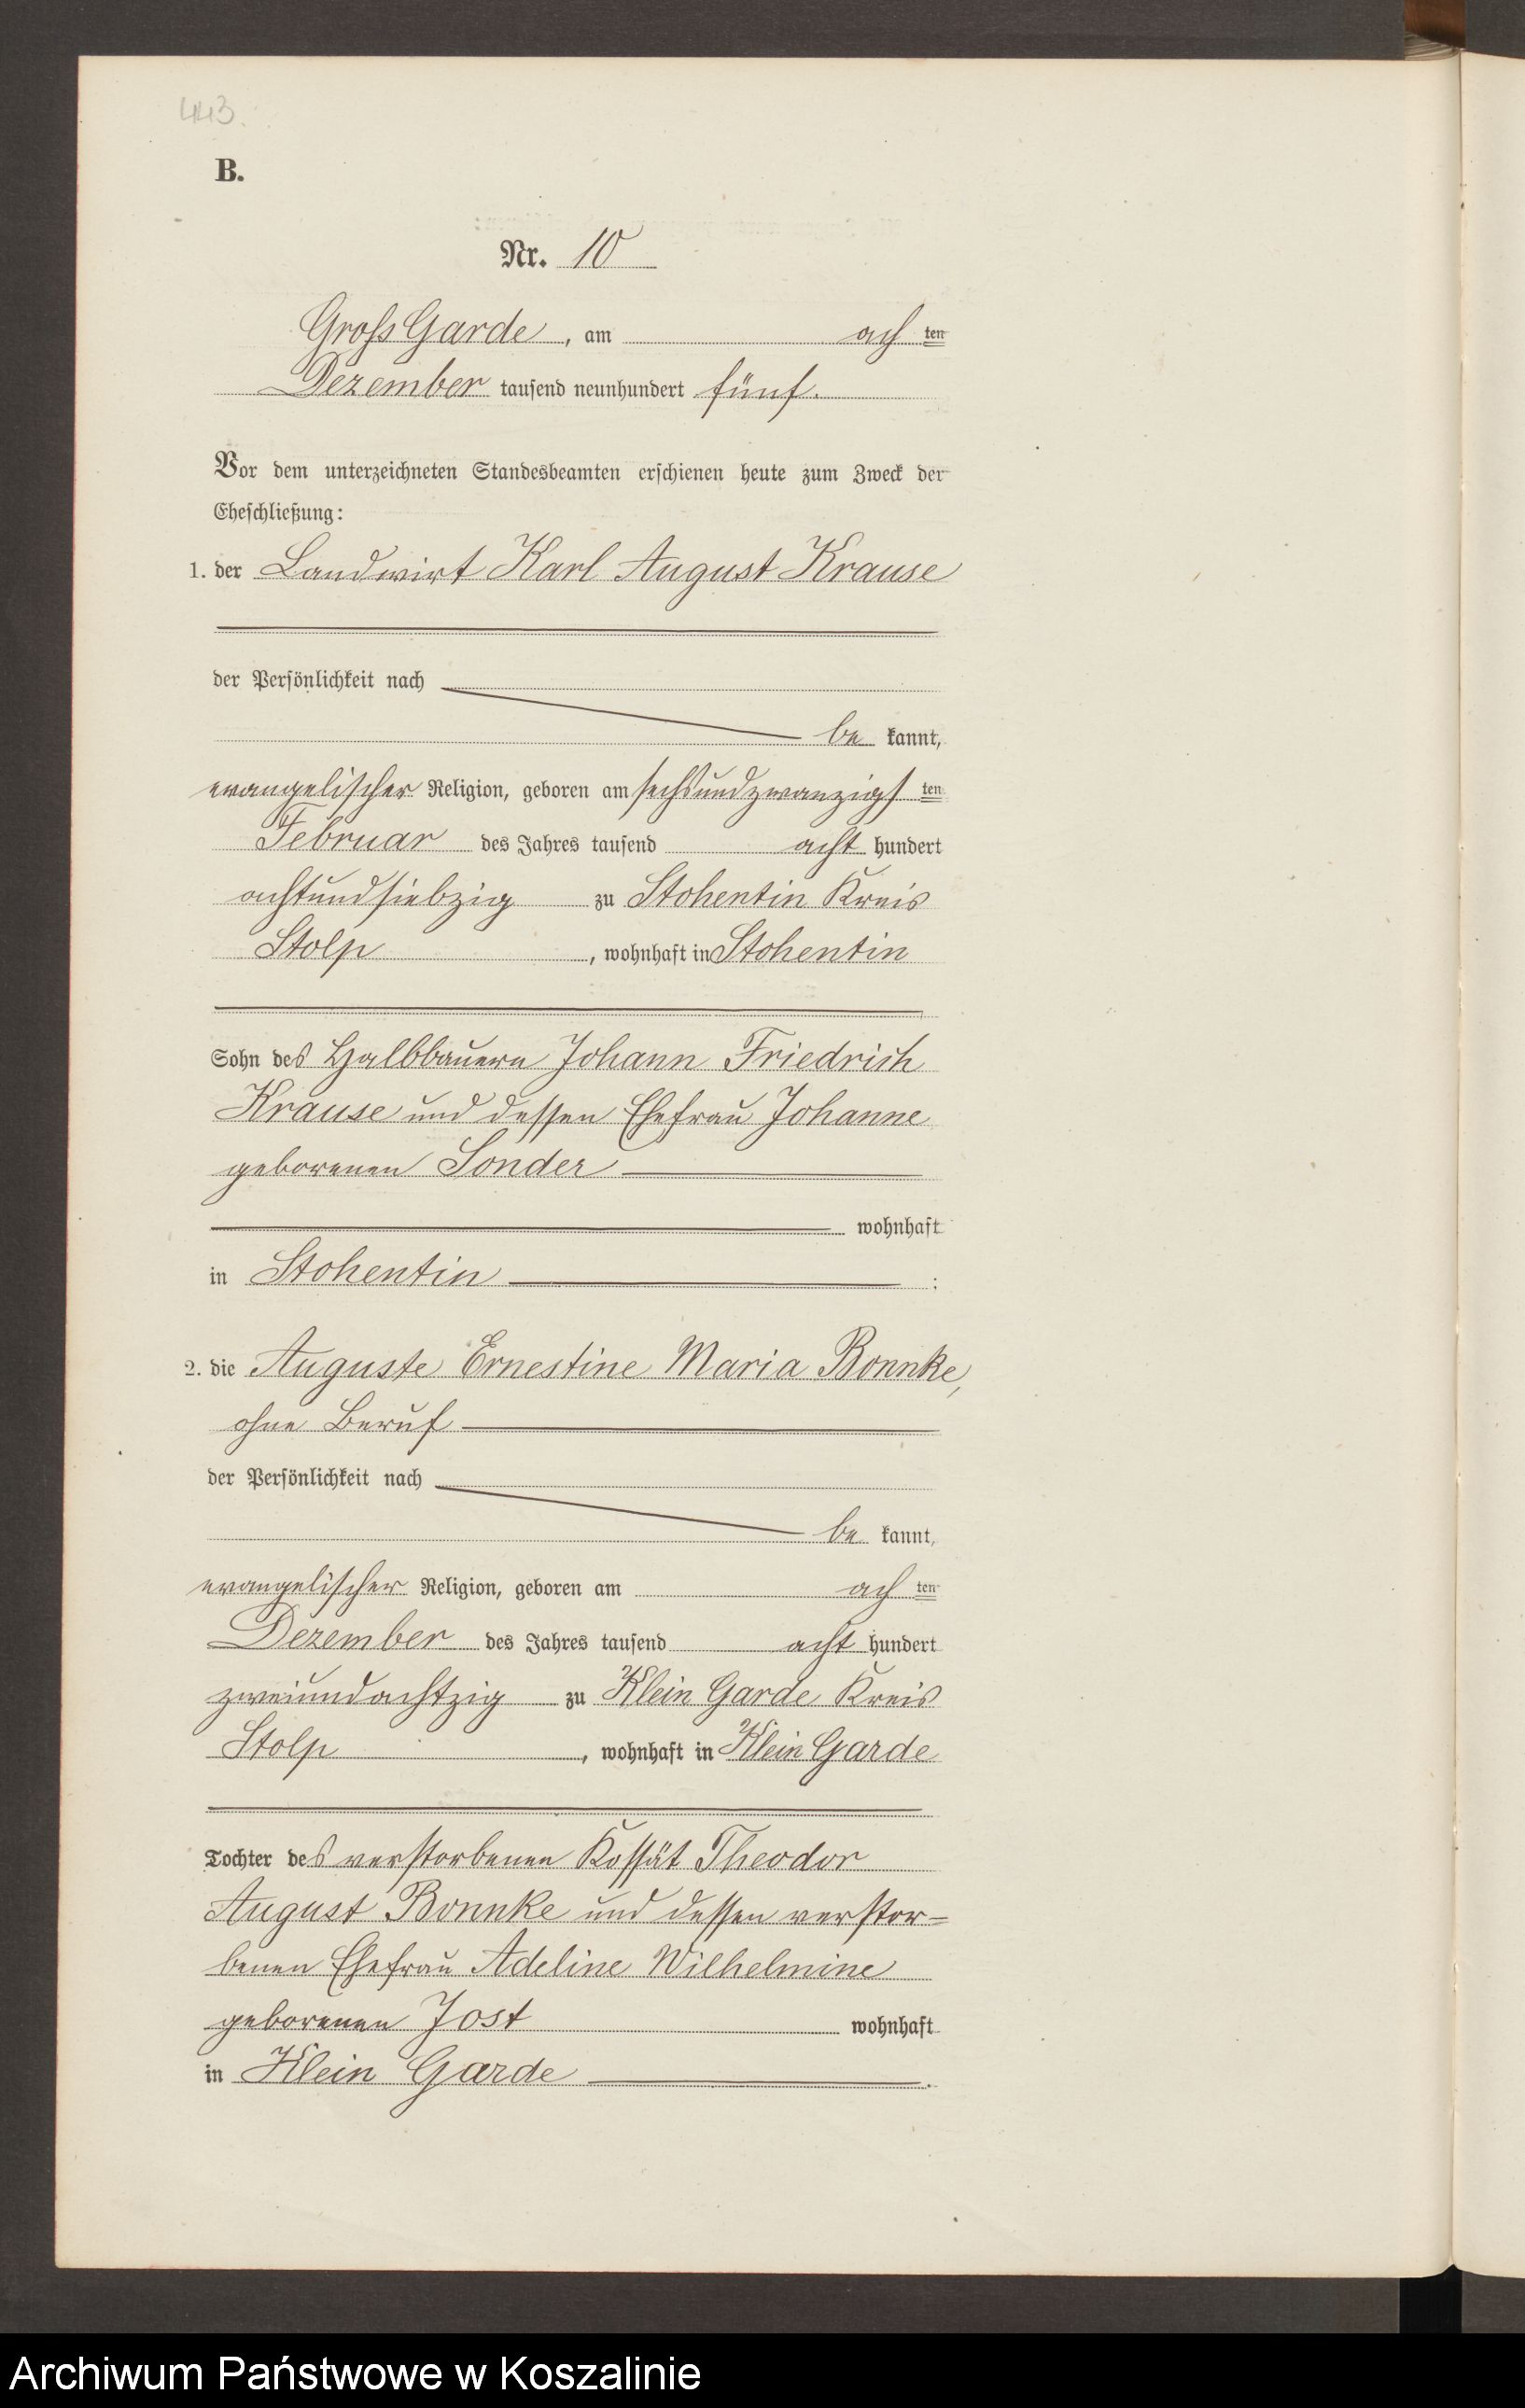 443.
B.
Nr. 10
Gross Garde, am ach ten
Dezember tausend neunhundert fünf.
Vor dem unterzeichneten Standesbeamten erschienen heute zum Zweck der
Eheschließung:
1. der Landwirt Karl August Krause
der Persönlichkeit nach
be kannt,
evangelischer Religion, geboren am sechsundzwanzigs ten
Februar des Jahres tausend acht hundert
achtundsiebzig zu Stohentin Kreis
Stolp, wohnhaft in Stohentin
Sohn des Halbbauern Johann Friedrich
Krause und dessen Ehefrau Johanne
geborenen Sonder
wohnhaft
in Stohentin :
2. die Auguste Ernestine Maria Bonnke,
ohne Beruf
der Persönlichkeit nach
be kannt,
evangelischer Religion, geboren am ach ten
Dezember des Jahres tausend acht hundert
zweiundachtzig zu Klein Garde Kreis
Stolp, wohnhaft in Klein Garde
Tochter des verstorbenen Kossät Theodor
August Bonnke und dessen verstor=
benen Ehefrau Adeline Wilhelmine
geborenen Jost wohnhaft
in Klein Garde.
Archiwum Państwowe w Koszalinie